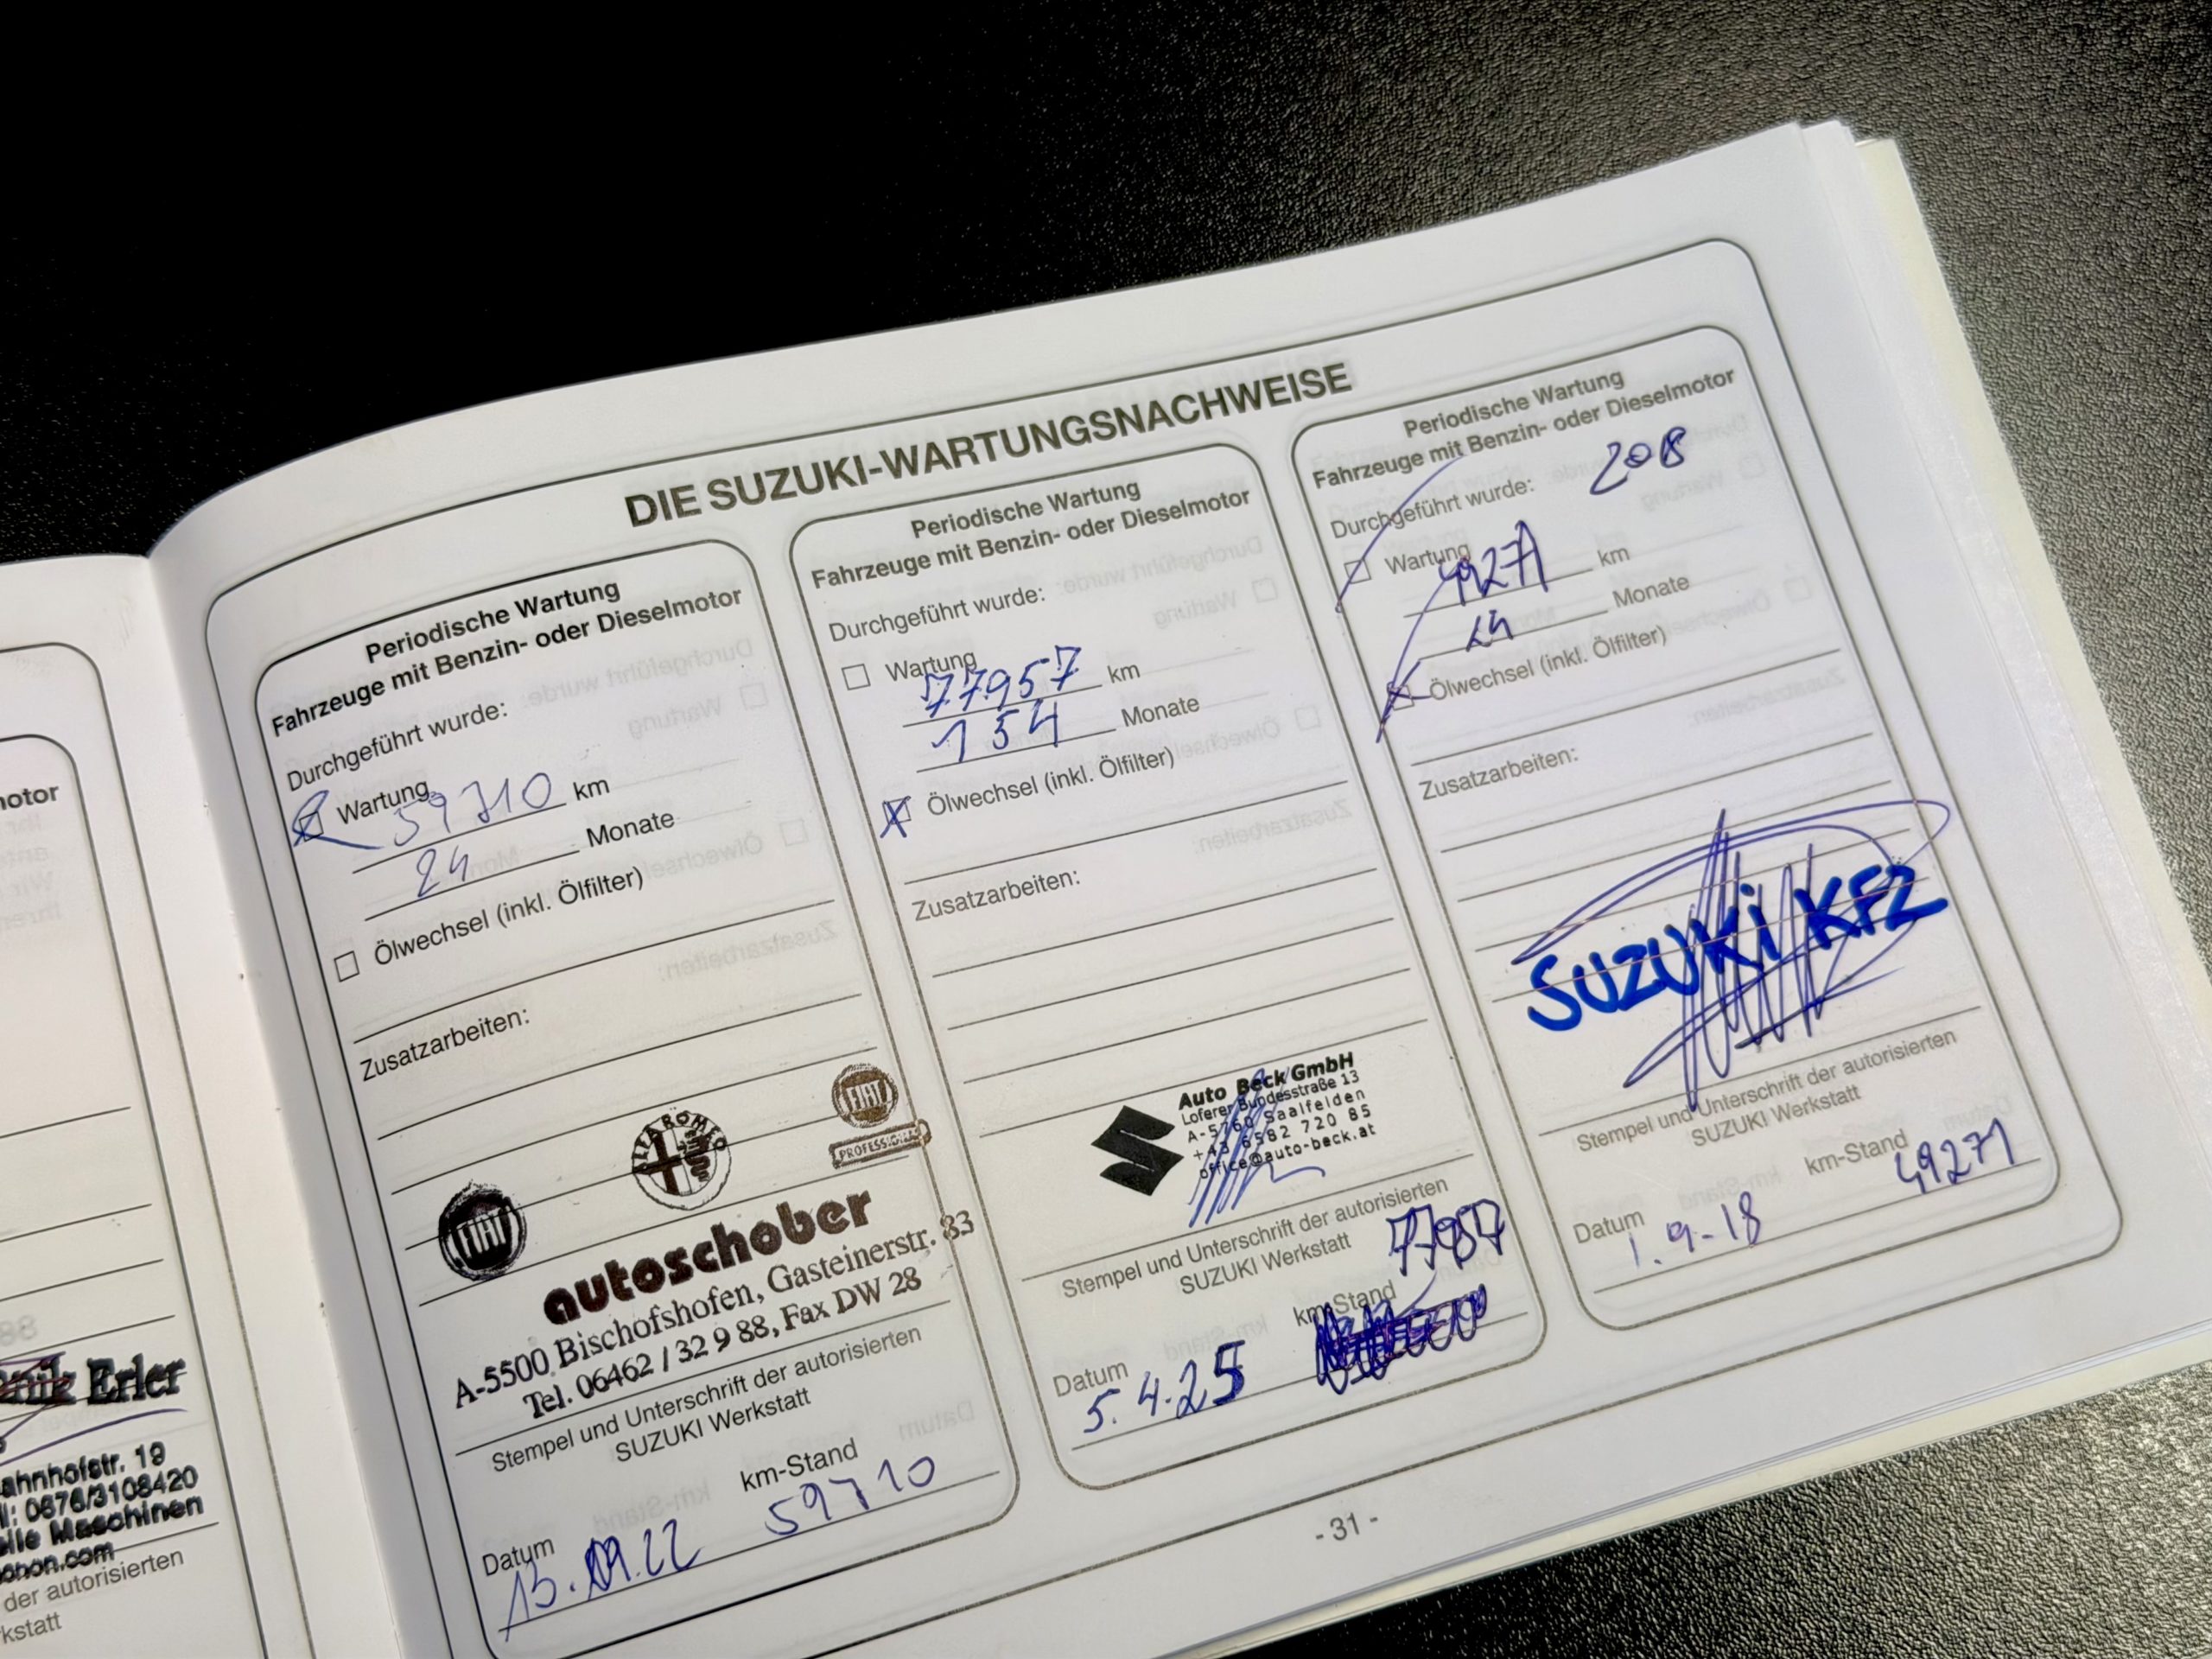 otor
nik Erler
ahnhofstr. 19
l: 0676/3108420
elle Maschinen
der autorisierten
kstatt
DIE SUZUKI-WARTUNGSNACHWEISE
Periodische Wartung
Fahrzeuge mit Benzin- oder Dieselmotor
Durchgeführt wurde:
Wartung
59710 km
24 Monate
Ölwechsel (inkl. Ölfilter)
Zusatzarbeiten:
FIAT
ALFA ROMEO
FIAT
PROFESSIONAL
autoschober
A-5500 Bischofshofen, Gasteinerstr. 83
Tel. 06462 / 32 9 88, Fax DW 28
Stempel und Unterschrift der autorisierten
SUZUKI Werkstatt
Datum km-Stand
13.09.22 59710
Periodische Wartung
Fahrzeuge mit Benzin- oder Dieselmotor
Durchgeführt wurde:
Wartung
77957 km
154 Monate
Ölwechsel (inkl. Ölfilter)
Zusatzarbeiten:
Auto Beck GmbH
Loferer Bundesstraße 13
A-5760 Saalfelden
+43 6582 720 85
office@auto-beck.at
Stempel und Unterschrift der autorisierten
SUZUKI Werkstatt
77957
Datum km-Stand
5.4.25
Periodische Wartung
Fahrzeuge mit Benzin- oder Dieselmotor
Durchgeführt wurde:
Wartung
49271 km
24 Monate
Ölwechsel (inkl. Ölfilter)
Zusatzarbeiten:
SUZUKI KFZ
Stempel und Unterschrift der autorisierten
SUZUKI Werkstatt
Datum km-Stand
1.9-18 49271
- 31 -